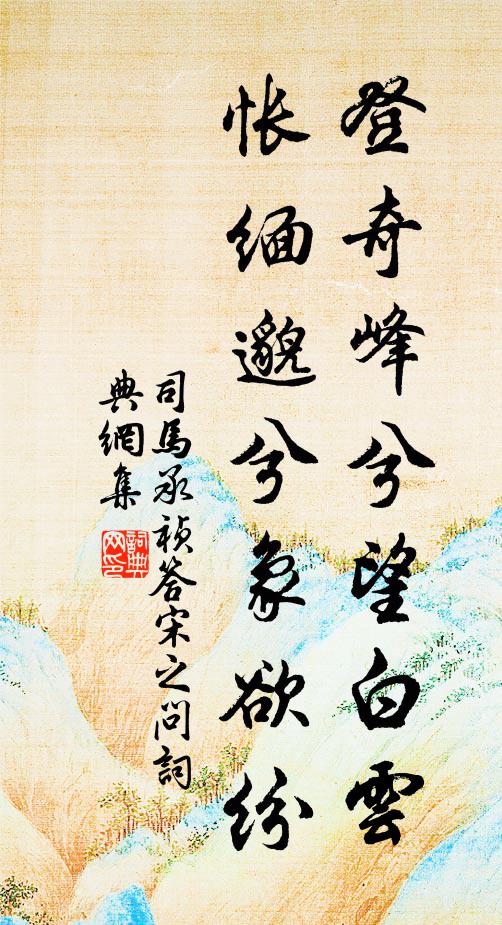 登奇峰兮望白雲
悵緬邈兮象欲紛
司馬承禎答宋之問詞
典網集
詞典網印